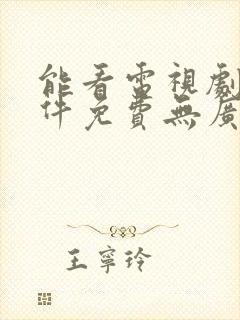 能看電視劇
件免費無廣
王寧玲